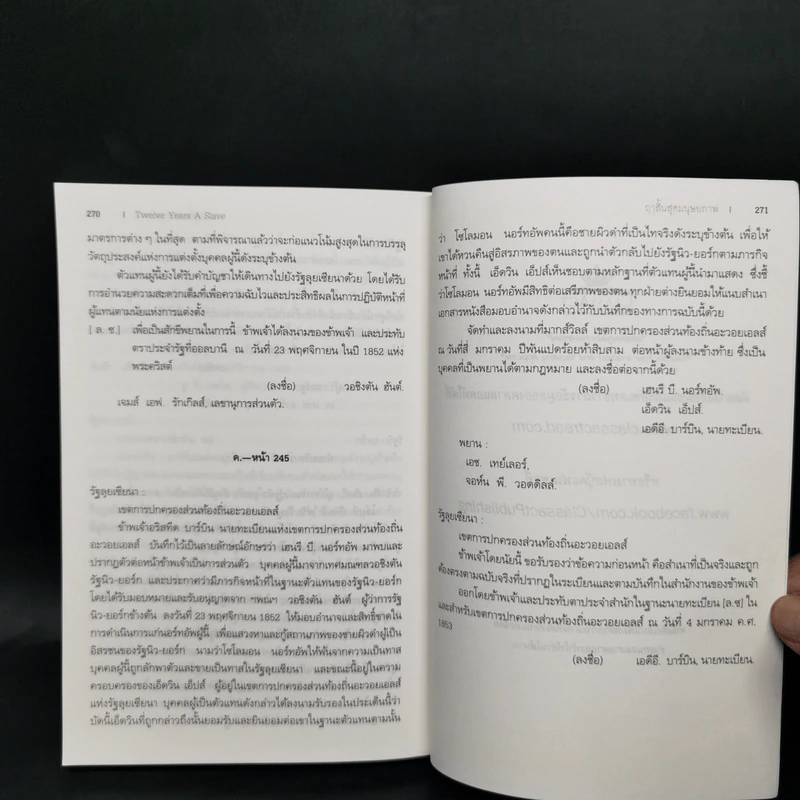 270 | Twelve Years A Slave
มาตรการต่าง ๆ ในที่สุด ตามที่พิจารณาแล้วว่าจะก่อแนวโน้มสูงสุดในการบรรลุ
วัตถุประสงค์แห่งการแต่งตั้งบุคคลผู้นี้ดังระบุข้างต้น
ตัวแทนผู้นี้ยังได้รับคำบัญชาให้เดินทางไปยังรัฐลุยเซียนาด้วย โดยได้รับ
การอำนวยความสะดวกเต็มที่เพื่อความฉับไวและประสิทธิผลในการปฏิบัติหน้าที่
ผู้แทนตามนัยแห่งการแต่งตั้ง
[ ล. ซ.] เพื่อเป็นสักขีพยานในการนี้ ข้าพเจ้าได้ลงนามของข้าพเจ้า และประทับ
ตราประจำรัฐที่ออลบานี ณ วันที่ 23 พฤศจิกายน ในปี 1852 แห่ง
พระคริสต์
(ลงชื่อ) วอชิงตัน ฮันต์.
เจมส์ เอฟ. รักเกิลส์, เลขานุการส่วนตัว.
ค.—หน้า 245
รัฐลุยเซียนา :
เขตการปกครองส่วนท้องถิ่นอะวอยเอลส์
ข้าพเจ้าอริสทีด บาร์บิน นายทะเบียนแห่งเขตการปกครองส่วนท้องถิ่น
อะวอยเอลส์ บันทึกไว้เป็นลายลักษณ์อักษรว่า เฮนรี บี. นอร์ทอัพ มาพบและ
ปรากฏตัวต่อหน้าข้าพเจ้าเป็นการส่วนตัว บุคคลผู้นี้มาจากเทศมณฑลวอชิงตัน
รัฐนิว-ยอร์ก และประกาศว่ามีภารกิจหน้าที่ในฐานะตัวแทนของรัฐนิว-ยอร์ก
โดยได้รับมอบหมายและรับอนุญาตจาก ฯพณฯ วอชิงตัน ฮันต์ ผู้ว่าการรัฐ
นิว-ยอร์กข้างต้น ลงวันที่ 23 พฤศจิกายน 1852 ให้มอบอำนาจและสิทธิ์ขาดใน
การดำเนินการแก่นอร์ทอัพผู้นี้ เพื่อแสวงหาและกู้สถานภาพของชายผิวดำผู้เป็น
อิสรชนของรัฐนิว-ยอร์ก นามว่าโซโลมอน นอร์ทอัพให้พ้นจากความเป็นทาส
บุคคลผู้นี้ถูกลักพาตัวและขายเป็นทาสในรัฐลุยเซียนา และขณะนี้อยู่ในความ
ครอบครองของเอ็ดวิน เอ็ปส์ ผู้อยู่ในเขตการปกครองส่วนท้องถิ่นอะวอยเอลส์
แห่งรัฐลุยเซียนา บุคคลผู้เป็นตัวแทนดังกล่าวได้ลงนามรับรองในประเด็นนี้ว่า
บัดนี้เอ็ดวินที่ถูกกล่าวถึงนั้นยอมรับและยินยอมต่อเขาในฐานะตัวแทนตามนั้น
ฤาสิ้นสุดมนุษยภาพ | 271
ว่า โซโลมอน นอร์ทอัพคนนี้คือชายผิวดำที่เป็นไทจริงดังระบุข้างต้น เพื่อให้
เขาได้หวนคืนสู่อิสรภาพของตนและถูกนำตัวกลับไปยังรัฐนิว-ยอร์กตามภารกิจ
หน้าที่ ทั้งนี้ เอ็ดวิน เอ็ปส์เห็นชอบตามหลักฐานที่ตัวแทนผู้นี้นำมาแสดง ซึ่งชี้
ว่าโซโลมอน นอร์ทอัพมีสิทธิต่อเสรีภาพของตน ทุกฝ่ายต่างยินยอมให้แนบสำเนา
เอกสารหนังสือมอบอำนาจดังกล่าวไว้กับบันทึกของทางการฉบับนี้ด้วย
จัดทำและลงนามที่มาร์กส์วิลล์ เขตการปกครองส่วนท้องถิ่นอะวอยเอลส์
ณ วันที่สี่ มกราคม ปีพันแปดร้อยห้าสิบสาม ต่อหน้าผู้ลงนามข้างท้าย ซึ่งเป็น
บุคคลที่เป็นพยานได้ตามกฎหมาย และลงชื่อต่อจากนี้ด้วย
(ลงชื่อ) เฮนรี บี. นอร์ทอัพ.
เอ็ดวิน เอ็ปส์.
เอดีอี. บาร์บิน, นายทะเบียน.
พยาน :
เอช. เทย์เลอร์,
จอห์น พี. วอดดิลล์.
รัฐลุยเซียนา :
เขตการปกครองส่วนท้องถิ่นอะวอยเอลส์
ข้าพเจ้าโดยนัยนี้ ขอรับรองว่าข้อความก่อนหน้า คือสำเนาที่เป็นจริงและถูก
ต้องตรงตามฉบับจริงที่ปรากฏในระเบียนและตามบันทึกในสำนักงานของข้าพเจ้า
ออกโดยข้าพเจ้าและประทับตราประจำสำนักในฐานะนายทะเบียน [ล.ซ] ใน
และสำหรับเขตการปกครองส่วนท้องถิ่นอะวอยเอลส์ ณ วันที่ 4 มกราคม ค.ศ.
1853
(ลงชื่อ) เอดีอี. บาร์บิน, นายทะเบียน.